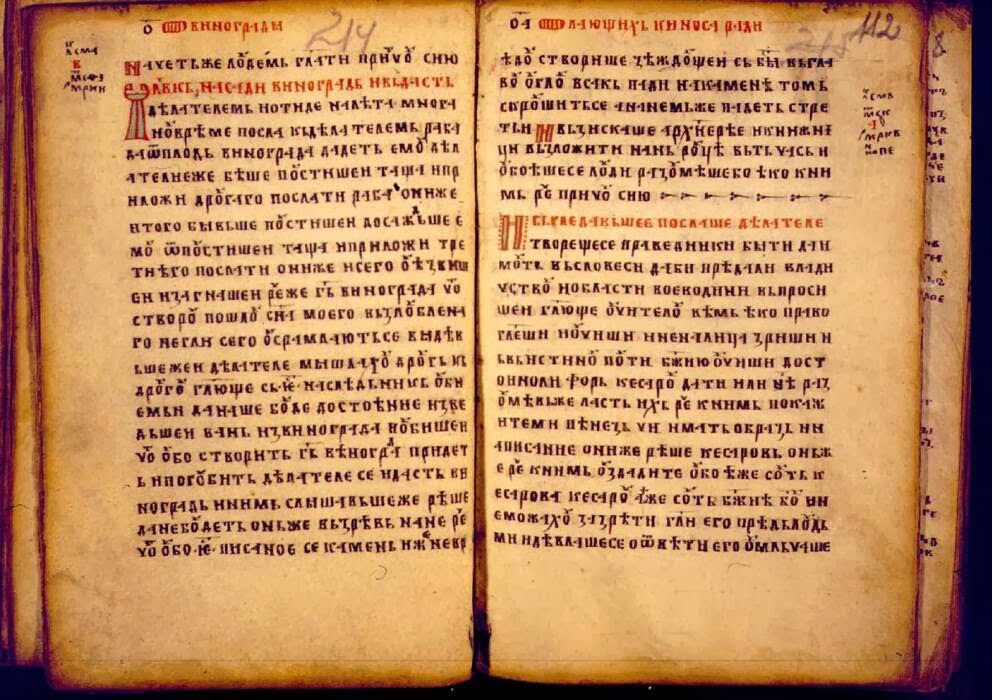 о҃ ѿ виноградѣ
214
Начетьже людемь глати причю сию
Чл҃вкь насади виноградь и вьдасть
дѣлателемь и отиде на лѣта многа
и вь врѣме посла кь дѣлателемь раба
да ѿ плодь винограда дадеть емꙋ дѣл
ателиеже бѣше постише и таща и пр
иложи дрꙋгаго послати раба ониже
и того бывьше и постише и досаждьше е
мꙋ ѿпостише и таща и приложи тре
тиѣго послати ониже и сего
и изагнаше и реже гь винограда чо
створꙋ пошлю сна моего вьзлюблена
го негли сего ꙋсрамлають се видѣв
ьшеже и дѣлателе мышлахꙋ дрꙋгь кь
дрꙋгꙋ глюще сь ѥ наслѣдьникь ꙋби
емь и да наше бꙋде достоѣние изве
дьше и вань из винограда и ꙋбише и
чо ꙋбо створить гь виноградꙋ придет
ь и погꙋбить дѣлателе се и дасть ви
ноградь инимь слышавьшеже реше
да не бꙋдеть оньже вьзрѣвь на не ре
чо ꙋбо ѥ писаное се камень иже не вр
о҃а ѿ лающихь киноса ради
112
ѣдꙋ створише зиждꙋщеи сь бы вь гла
вꙋ ꙋглꙋ всакь пади на камене томь
скрꙋшить се а на немьже падеть стре
ть и И вьзискаше архиерѣе и книжни
ци вьзложити нань рꙋцѣ вь ть чась и
ꙋбоѣше се люди разꙋмѣше бо ѣко к ни
мь ре причю сию
И сьгледавьше е послаше дѣлателе
твореще се праведники быти да и
мꙋть вь словеси да би прѣдали влади
чьствꙋ и области воеводини и вьпроси
ше и глюще ꙋчителю вѣмь ѣко право
глеши и ꙋчиши и не на лица зриши н
ь вь истинꙋ пꙋти бжию ꙋчиши дост
оино ли форь кесарꙋ дати или не раз
ꙋмѣвьже ласть ихь ре к нимь покаж
ите ми пѣнезь чи имать образь и н
аписание ониже реше кесаровь оньж
е ре к нимь ꙋздадите ꙋбо ѣже сꙋть к
есарова кесарꙋ а ѣже сꙋть бжиѣ бꙋ и н
е можахꙋ зазрѣти гла его прѣдь людь
ми и дѣвлаше се о ѿвѣти его ꙋмльчаше